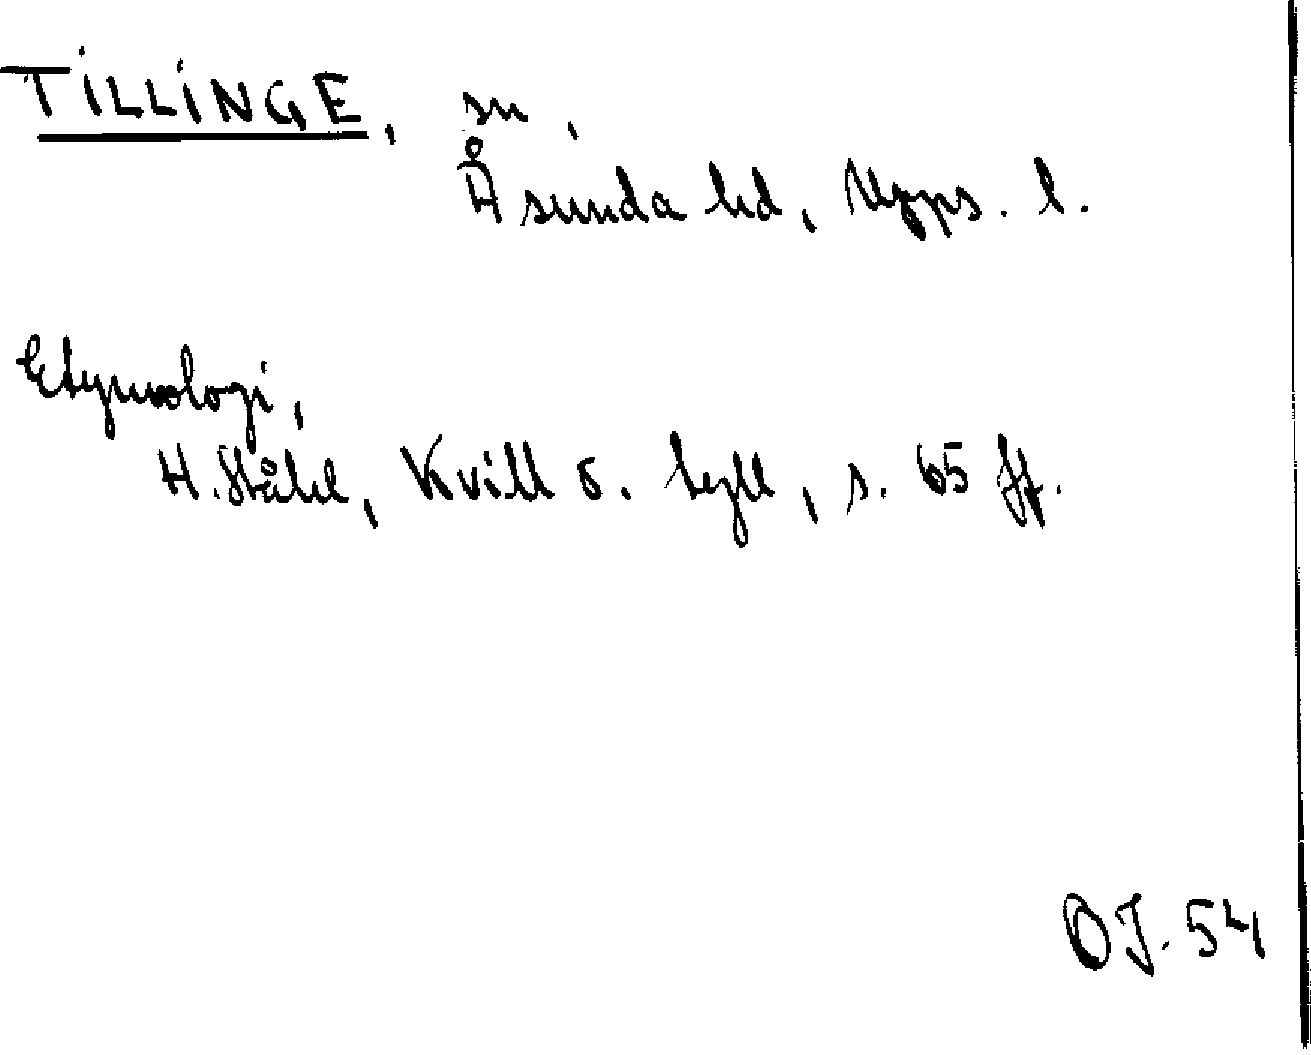 TILLINGE, sn,
Åsunda hd, Upps. l.
Etymologi,
H. Ståhl, Kvill o. tyll, s. 65 ff.
OJ. 54